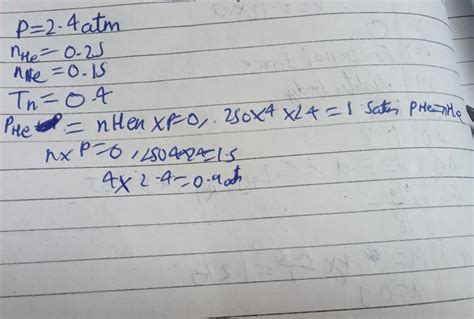 P=2.4atm
nHe=0.25
nNe=0.15
Tn=0.4
PHe = nHen xP=0,. 250x4 x24 = 1 5atm PHe=nHe
nxP=0,2504x24=1.5
4x2.4=0.9atm